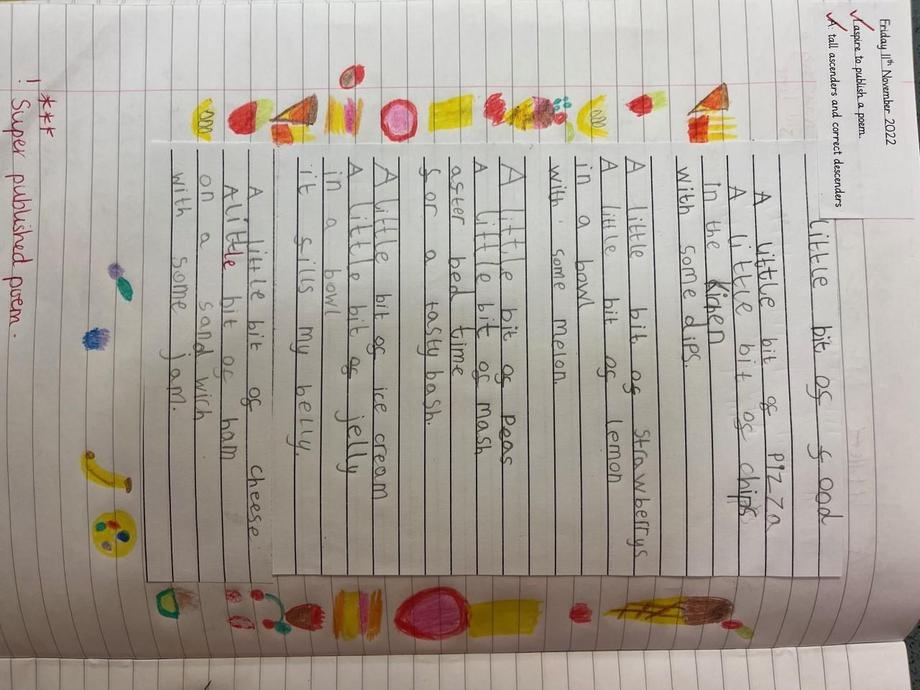 Friday 11th November 2022
I aspire to publish a poem.
A: tall ascenders and correct descenders
little bit of food
A little bit of pizza
A little bit of chips
in the Kichen
with some dips.
A little bit of strawberrys
A little bit of lemon
in a bowl
with some melon.
A little bit of Peas
A little bit of mash
after bed time
for a tasty bash.
A little bit of ice cream
A little bit of jelly
in a bowl
it fills my belly.
A little bit of cheese
A little bit of ham
on a sand wich
with some jam.
***
! Super published poem.